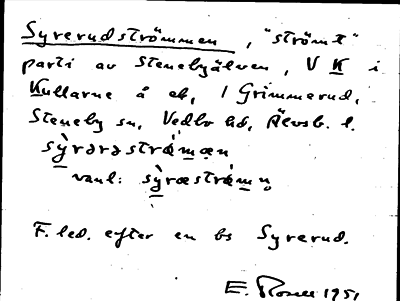 Syrerudströmmen, "strömt"
parti av Stenebyälven, V K i
Kullarne å ek, 1 Grimmerud,
Steneby sn, Vedbo hd, Älvsb. l.
sỳrərəstrámən
vanl: sỳrəstrámn
F. led. efter en bs Syrerud.
E. Rosell 1951